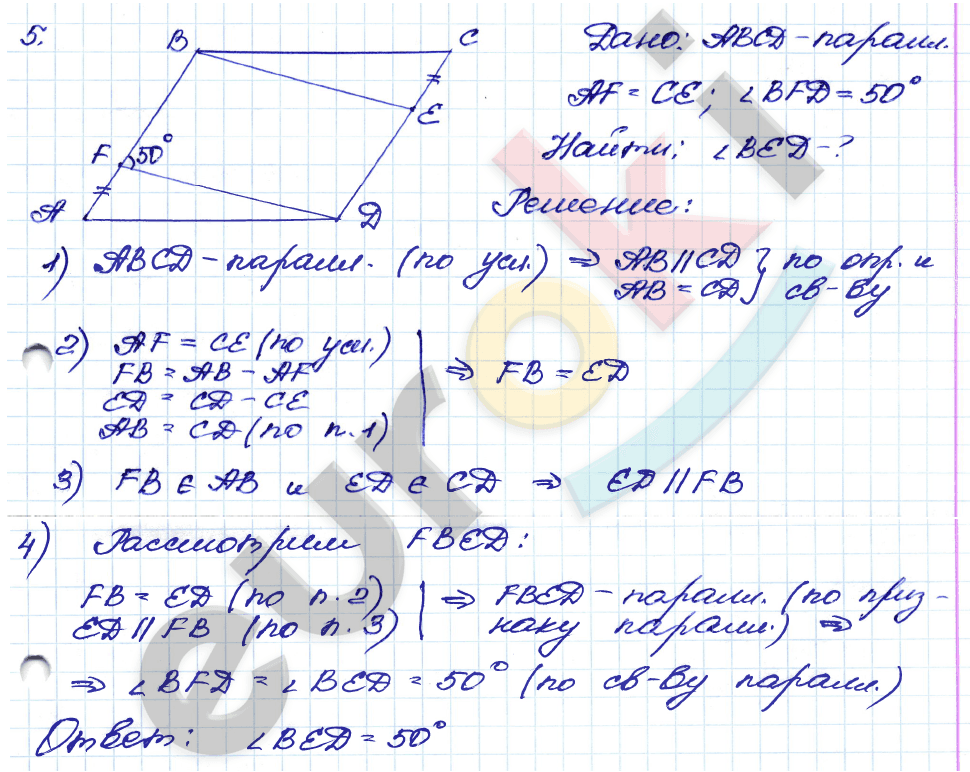 5.
B
C
E
F 50°
A
D
Дано: ABCD - паралл.
AF = CE; ∠BFD = 50°
Найти: ∠BED - ?
Решение:
1) ABCD - паралл. (по усл.) ⇒ AB || CD } по опр. и
AB = CD } св-ву
2) AF = CE (по усл.)
FB = AB - AF ⇒ FB = ED
ED = CD - CE
AB = CD (по п.1)
3) FB ∈ AB и ED ∈ CD ⇒ ED || FB
4) Рассмотрим FBED:
FB = ED (по п. 2) | ⇒ FBED - паралл. (по приз-
ED || FB (по п. 3) | наку паралл.) ⇒
⇒ ∠BFD = ∠BED = 50° (по св-ву паралл.)
Ответ: ∠BED = 50°
euroki